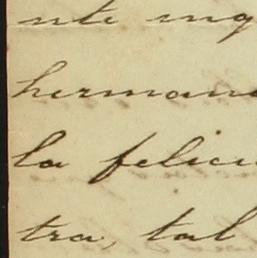 nte ing
herman
la felici
tra, tal